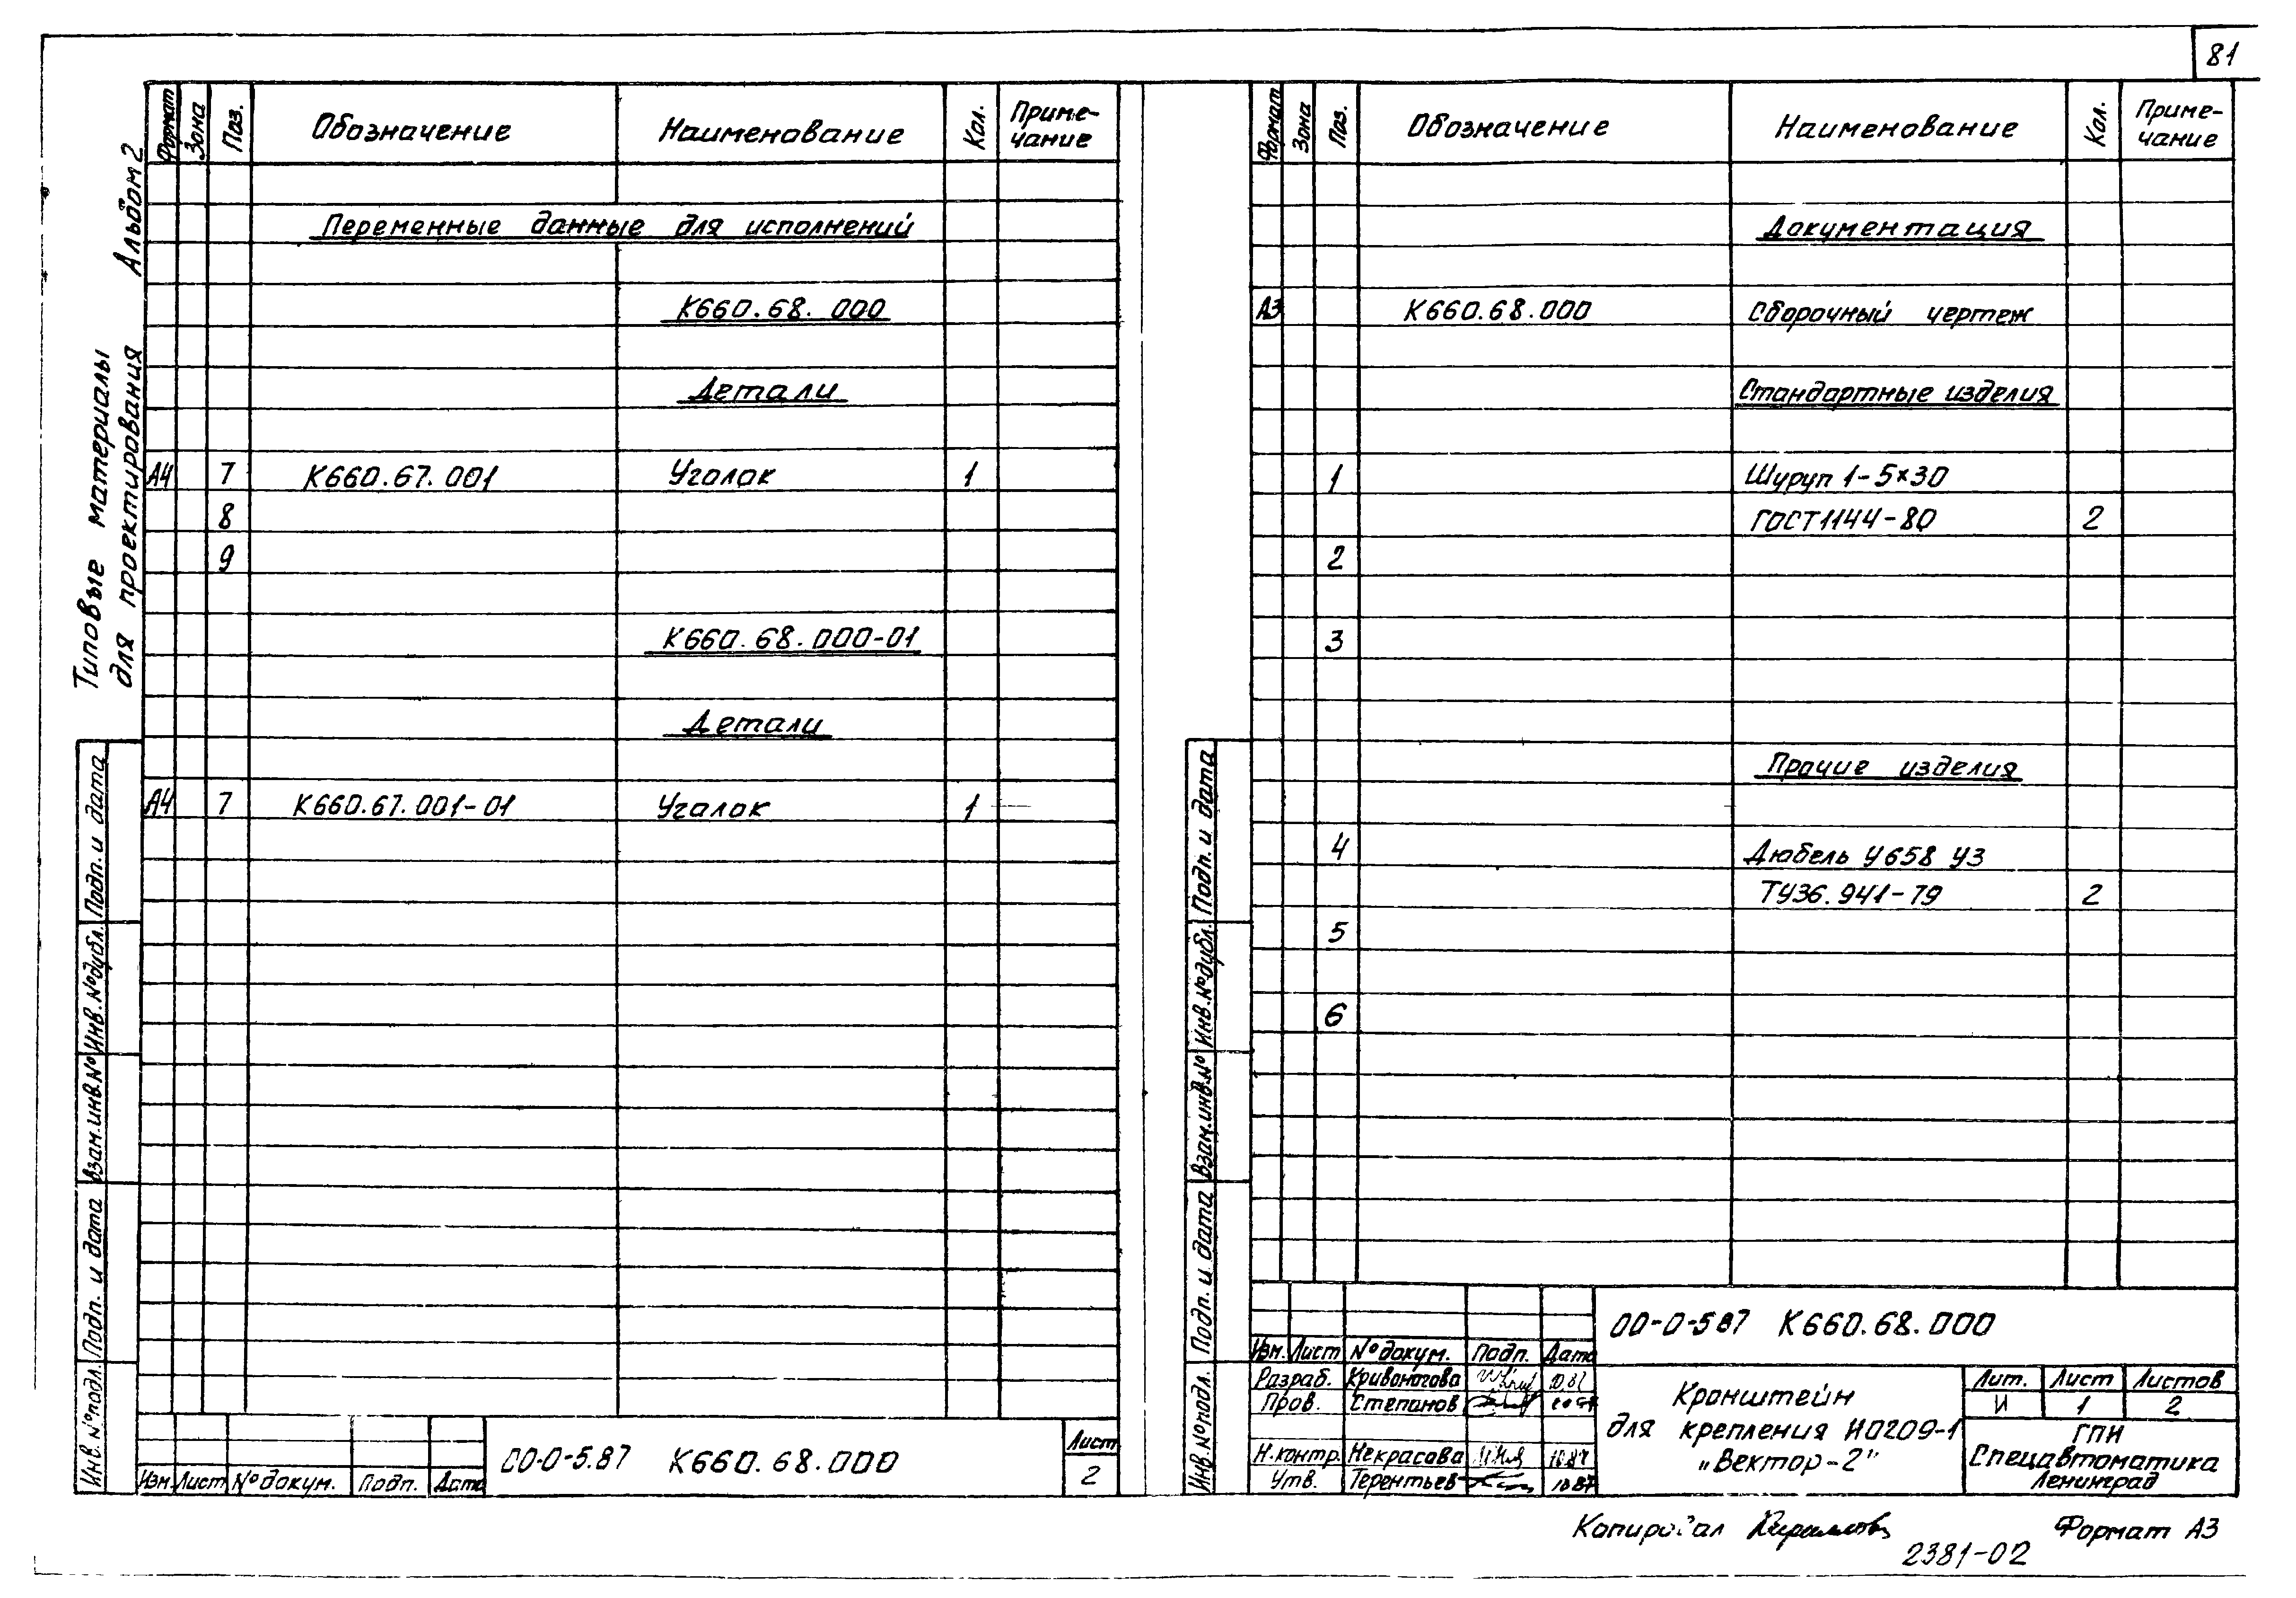 81
Типовые материалы
для проектирования
Альбом 2
Формат Зона Поз. Обозначение Наименование Кол. Приме-
чание
Переменные данные для исполнений
К660.68.000
Детали
А4 7 К660.67.001 Уголок 1
8
9
К660.68.000-01
Детали
А4 7 К660.67.001-01 Уголок 1
Подп. и дата
Инв. № дубл.
Взам. инв. №
Подп. и дата
Инв. № подл.
Изм. Лист № докум. Подп. Дата
00-0-5.87 К660.68.000
Лист
2
Формат Зона Поз. Обозначение Наименование Кол. Приме-
чание
Документация
А3 К660.68.000 Сборочный чертеж
Стандартные изделия
1 Шуруп 1-5×30
ГОСТ 1144-80 2
2
3
Прочие изделия
4 Дюбель У658 У3
ТУ36.941-79 2
5
6
Подп. и дата
Инв. № дубл.
Взам. инв. №
Подп. и дата
Инв. № подл.
Изм. Лист № докум. Подп. Дата
Разраб. Кривоногова 10.87
Пров. Степанов
Н.контр. Некрасова 10.87
Утв. Терентьев 10.87
00-0-5.87 К660.68.000
Кронштейн
для крепления НО209-1
„Вектор-2"
Лит. Лист Листов
И 1 2
ГПИ
Спецавтоматика
Ленинград
Копировал
Формат А3
2381-02